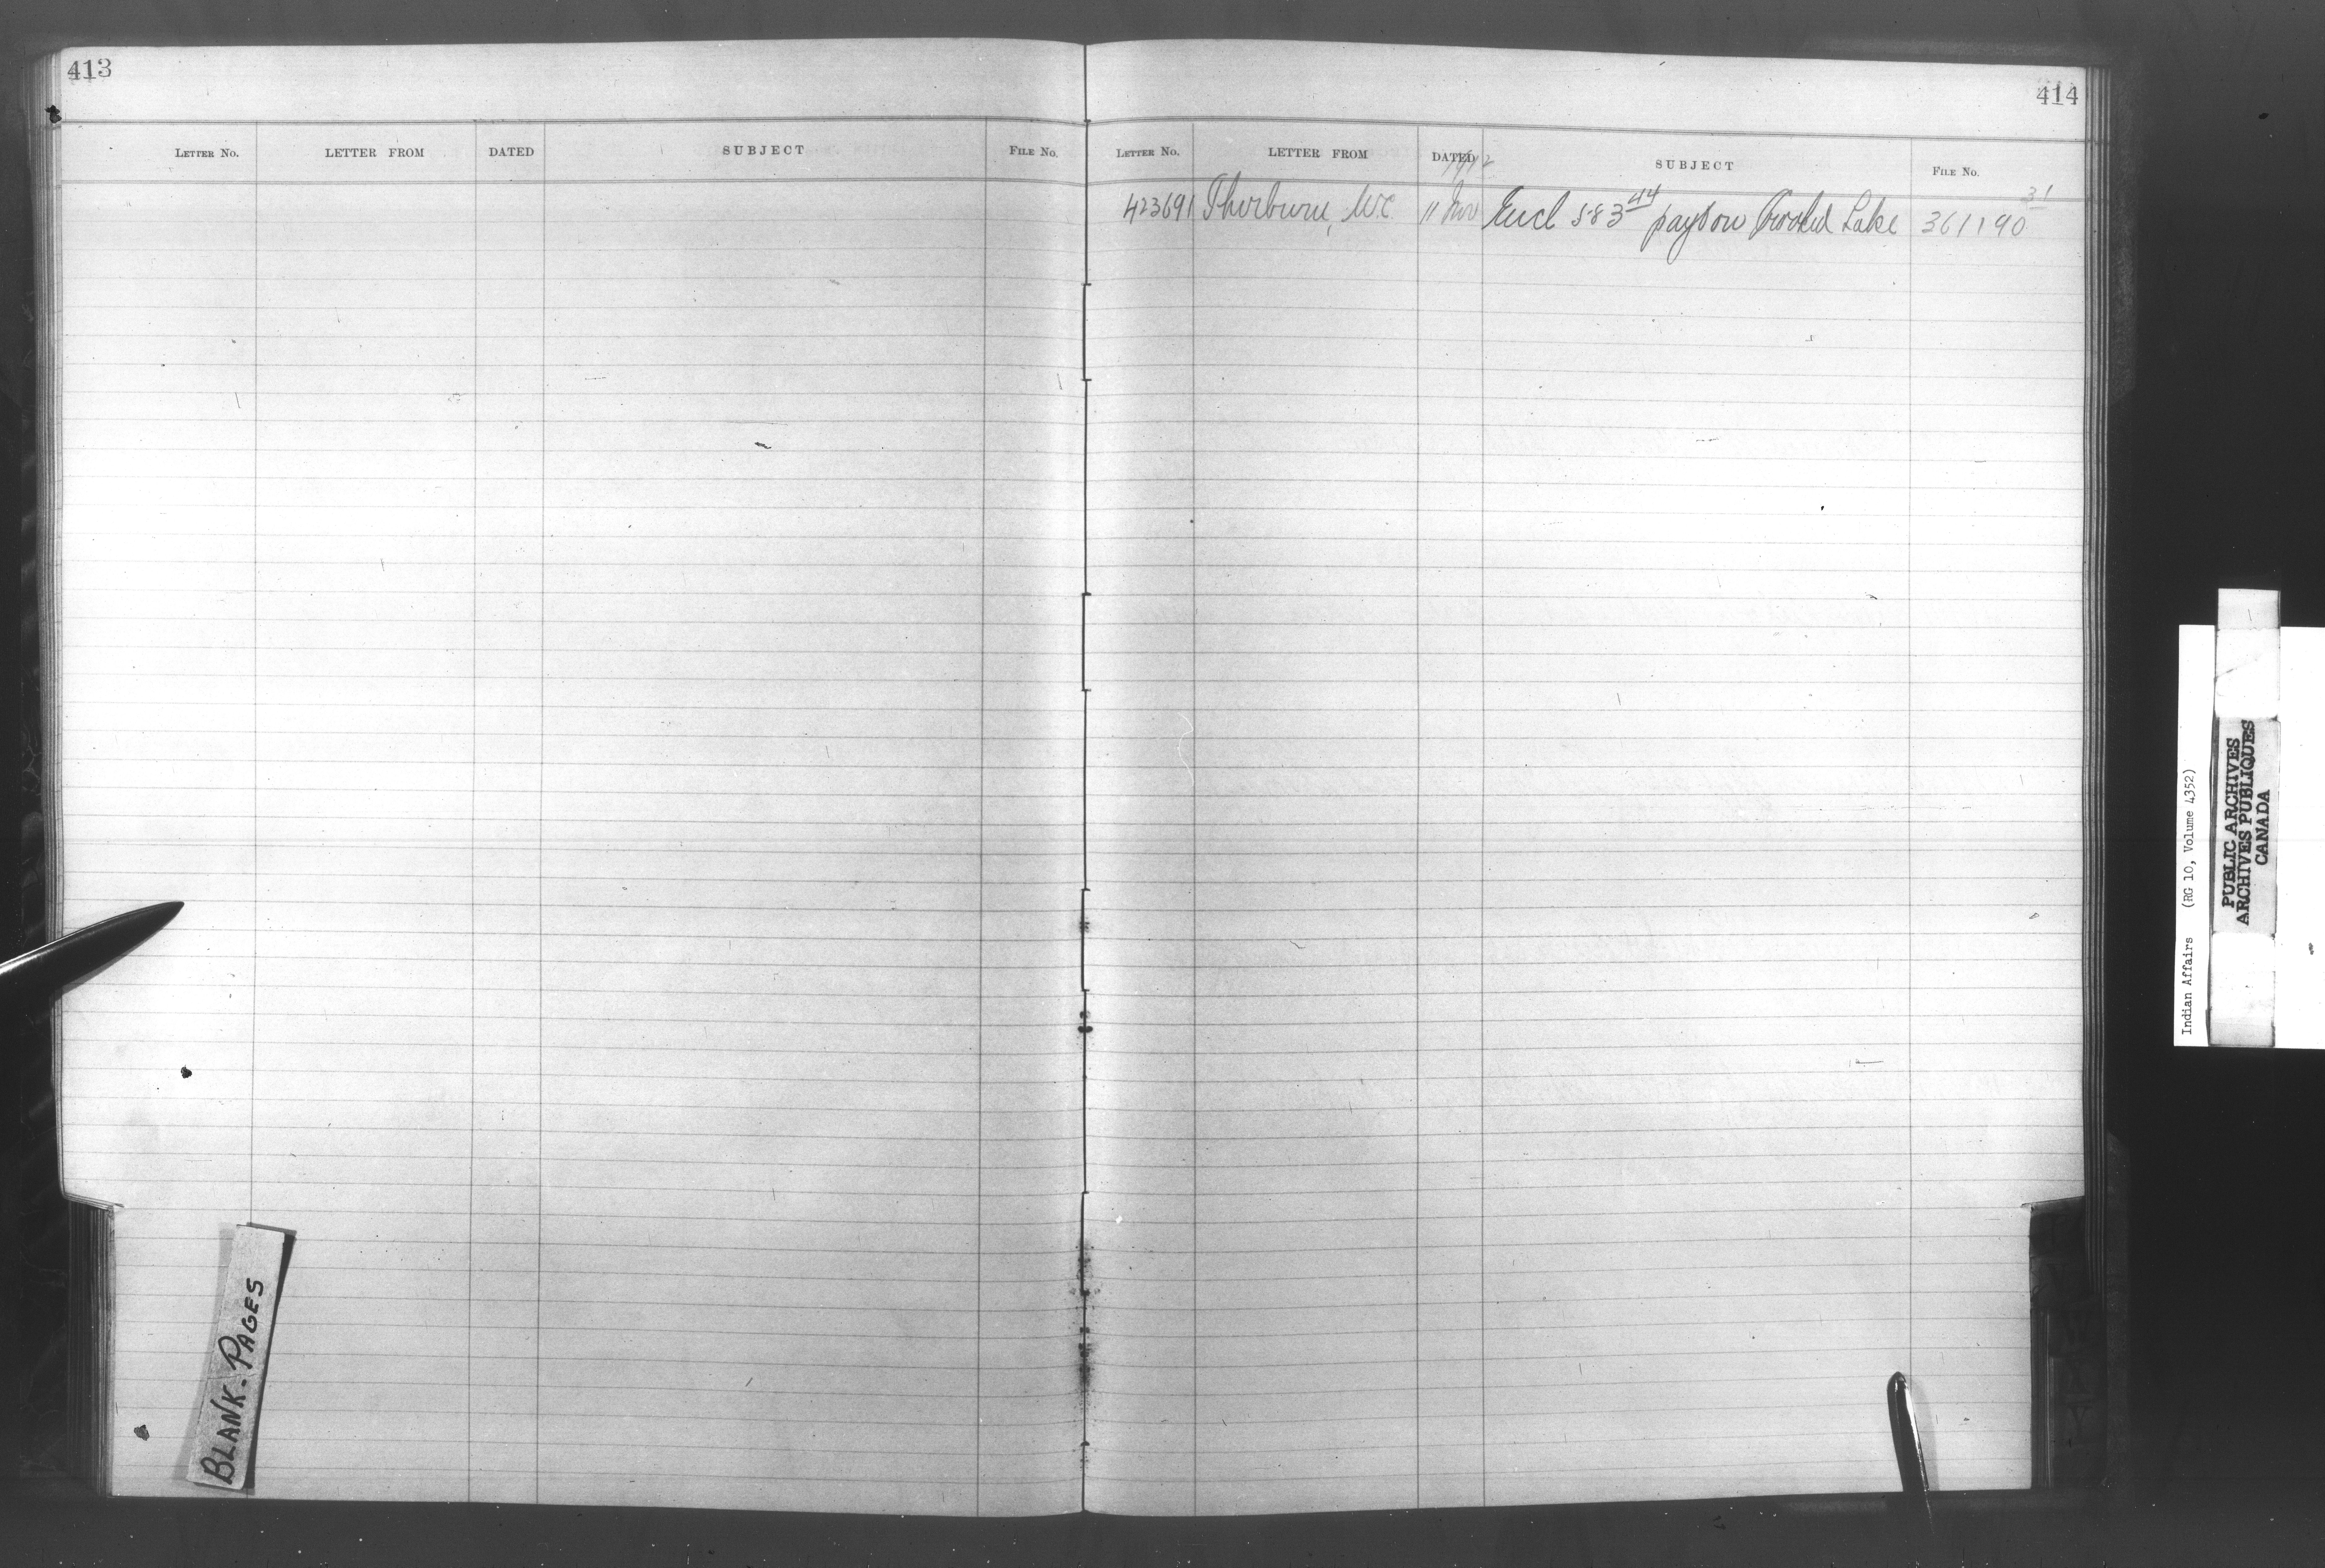 413
LETTER NO. LETTER FROM DATED SUBJECT FILE NO.
BLANK. PAGES
414
LETTER NO. LETTER FROM DATED SUBJECT FILE NO.
1912
423691 Thorburn, W.C 11 Nov Encl 583 44 payt on Crooked Lake 361190 31
Indian Affairs (RG 10, Volume 4352)
PUBLIC ARCHIVES
ARCHIVES PUBLIQUES
CANADA